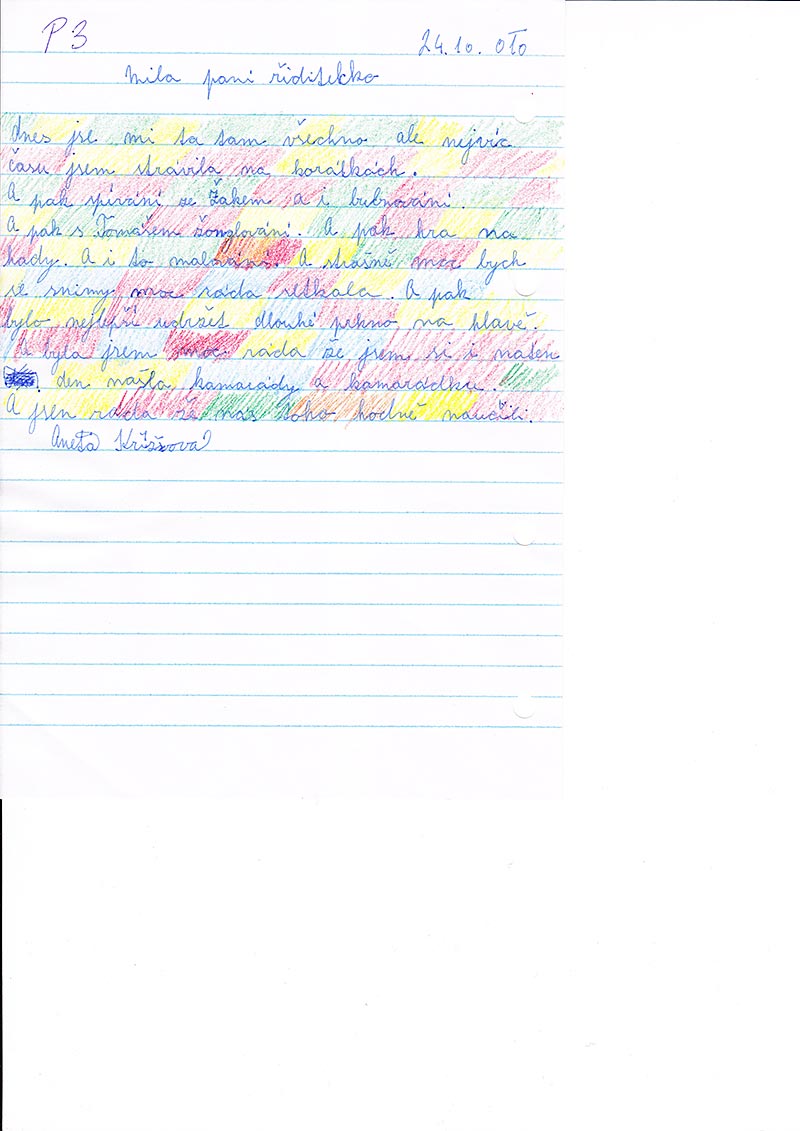 P3
24.10. 010
Mila paní řiditelko
dnes jse mi ta tam všechno ale nejvíc
času jsem strávila na korátkách.
A pak spívání ze Žakem a i bubnování.
A pak s Tomášem žonglování. A pak hra na
hady. A i to malování. A strašně moc bych
se snimy moc ráda setkala. A pak
bylo nejlepší udržet dlouhé prkno na hlavě.
A byla jsem moc ráda že jsem si i našen
den našla kamarády a kamarádku.
A jsen ráda že nás toho hodně naučili.
Aneta Křížova